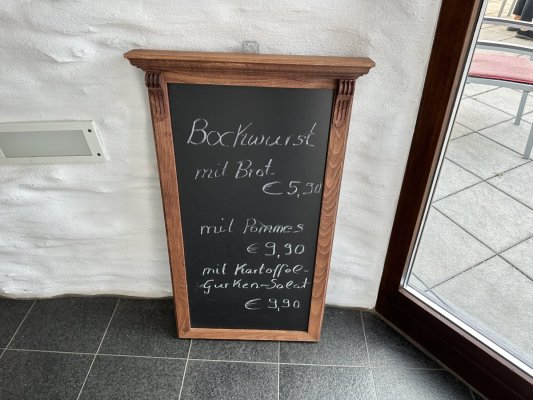 Bockwurst
mit Brot
€ 5,90
mit Pommes
€ 9,90
mit Kartoffel-
Gurken-Salat
€ 9,90